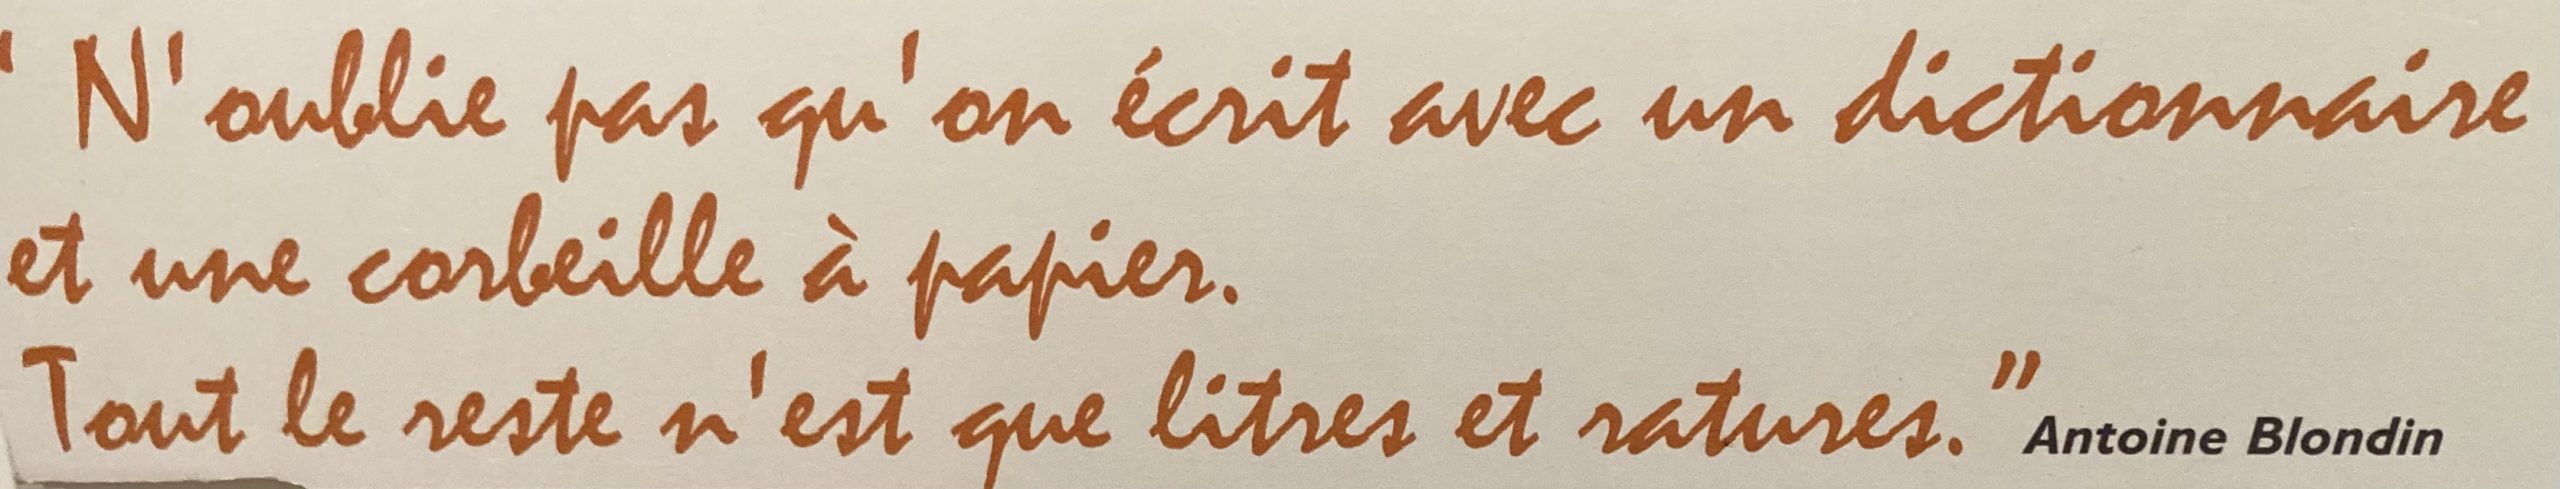 " N'oublie pas qu'on écrit avec un dictionnaire
et une corbeille à papier.
Tout le reste n'est que litres et ratures." Antoine Blondin